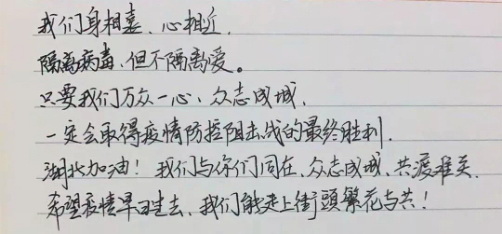 我们身相离、心相近,
隔离病毒,但不隔离爱。
只要我们万众一心、众志成城,
一定会取得疫情防控阻击战的最终胜利.
湖北加油！我们与你们同在,众志成城,共渡难关.
希望疫情早日过去,我们能走上街頭繁花与共！